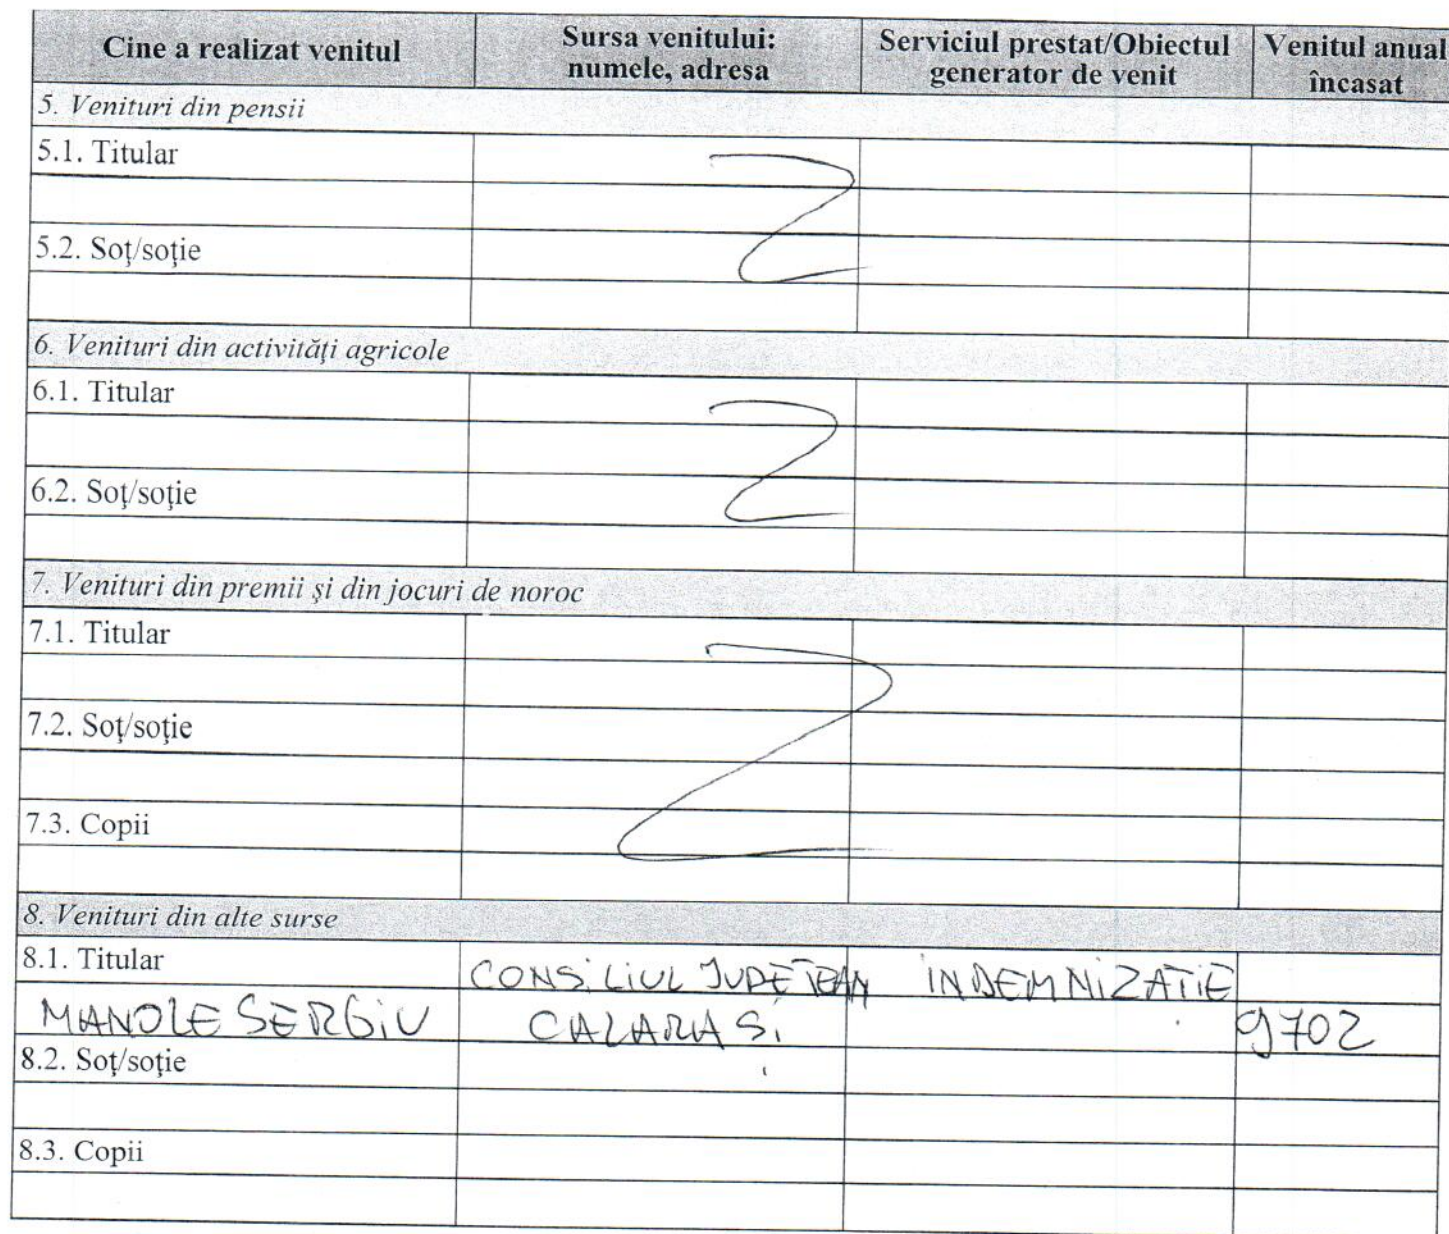 Cine a realizat venitul
Sursa venitului:
numele, adresa
Serviciul prestat/Obiectul
generator de venit
Venitul anual
încasat
5. Venituri din pensii
5.1. Titular
5.2. Soţ/soţie
6. Venituri din activităţi agricole
6.1. Titular
6.2. Soţ/soţie
7. Venituri din premii şi din jocuri de noroc
7.1. Titular
7.2. Soţ/soţie
7.3. Copii
8. Venituri din alte surse
8.1. Titular
MANOLE SERGIU
CONSILIUL JUDEŢEAN
CALARASI
INDEMNIZATIE
9702
8.2. Soţ/soţie
8.3. Copii